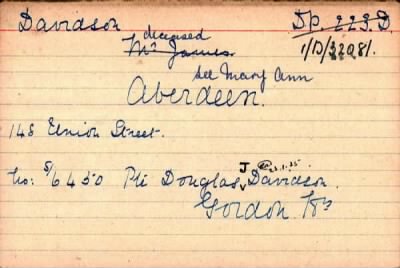 Davidson DP. 223.D.
deceased 1/D/32081.
Mr James.
see Mary Ann
Aberdeen.
148 Union Street.
No: S/6450 Pte Douglas J Davidson.
Gordon Hrs